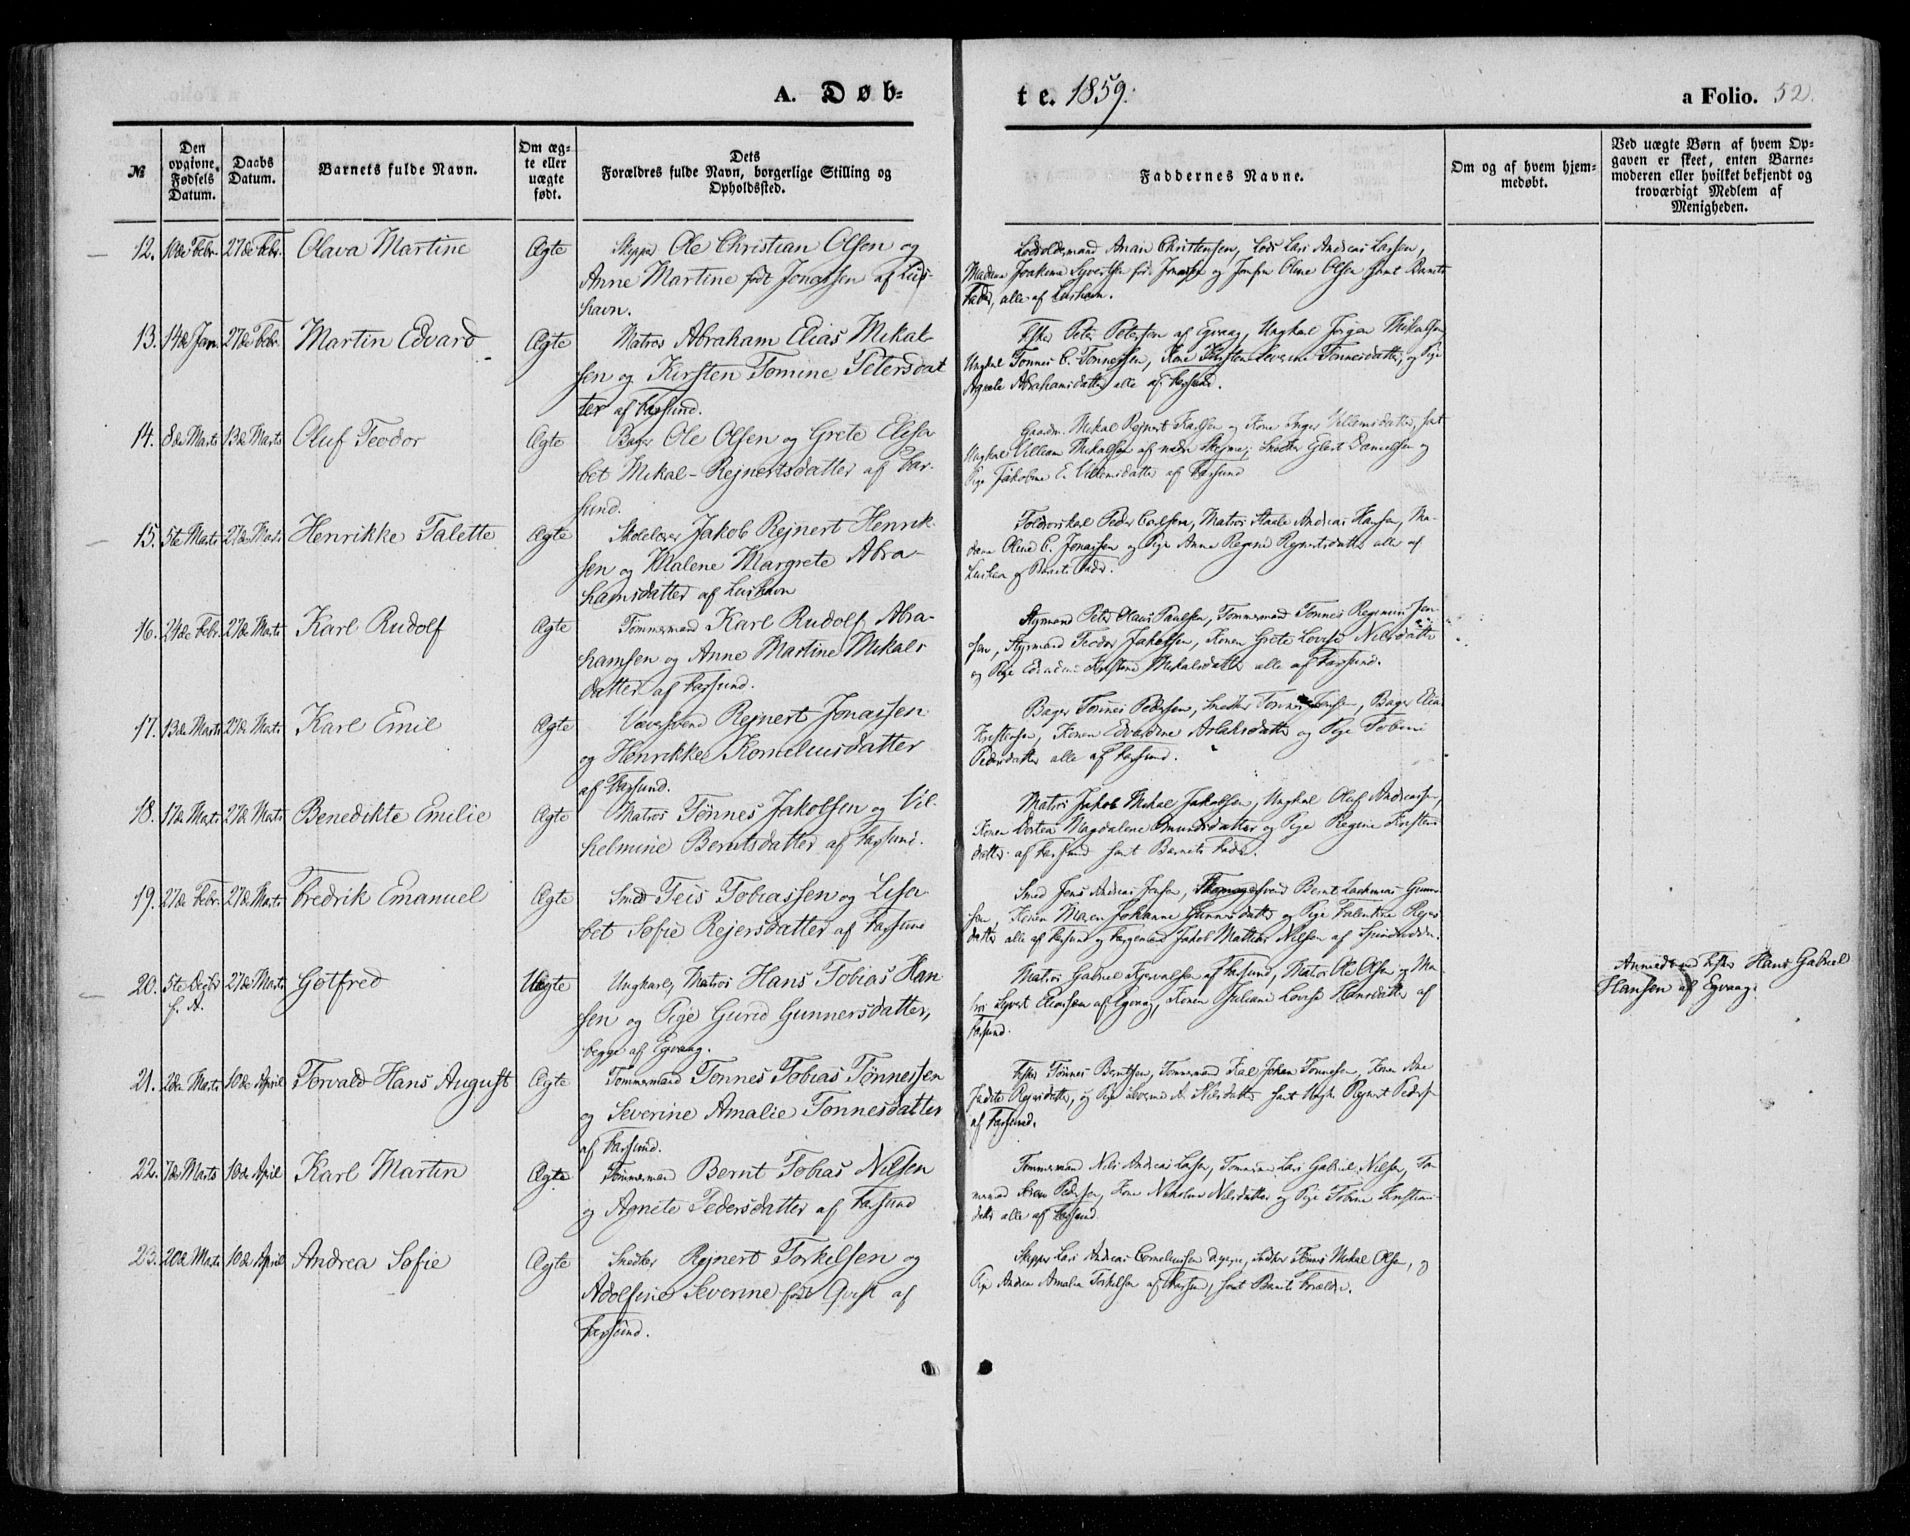 A. Døb-
te. 1859.
a Folio. 52.
№
Den opgivne Fødsels Datum.
Daabs Datum.
Barnets fulde Navn.
Om æg-
te eller
uægte
født.
Dets
Forældres fulde Navn, borgerlige Stilling og
Opholdssted.
Faddernes Navne.
Om og af hvem hjem-
medøbt.
Ved uægte Børn af hvem Op-
gaven er skeet, enten Barne-
moderen eller hvilket bekjendt og
troværdigt Medlem af
Menigheden.
12. 10de Febr. 27de Febr. Olava Martine Ægte Skipper Ole Christian Olsen og
Anne Martine født Jonassen af Lus-
havn.
Lodsoldermand Christensen, Lods Lars Andreas Larsen,
Madame Joakime Syvertsen født Jonassen og Jomfru Oline Olsen samt Barnets
Fader, alle af Lushavn.
13. 14de Jan. 27de Febr. Martin Edvard Ægte Matros Abraham Elias Mikal-
sen og Kirsten Tomine Petersdat
ter af Farsund.
Fisker Peter Petersen af Egvaag, Ungkal Jørgen Mikalsen
Ungkal Tønnes C. Tønnessen, Kone Kirsten Severine Tønnesdatter, og Pige
Agnete Abrahamsdatter alle af Farsund.
14. 8de Marts 13de Marts Oluf Teodor Ægte Bager Ole Olsen og Grete Elisa
bet Mikal-Rejnertsdatter af Far-
sund.
Gaardm. Mikal Rejnert Karlsen og Kone Inger Villemsdatter, samt
Ungkal Villem Mikalsen af nedre Skeime; Snedker Glert Danielsen og
Pige Jakobine E. Villemsdatter af Farsund
15. 5te Marts 27de Marts Henrikke Talette Ægte Skolelærer Jakob Rejnert Henrik
sen og Malene Margrete Abra-
hamsdatter af Lushavn
Toldroerskarl Peder Carlsen, Matros Staale Andreas Hansen, Ma-
dame Oline C. Jonassen og Pige Anne Regine Rejnertsdatter alle af
Lushavn og Barnets Fader.
16. 24de Febr. 27de Marts Karl Rudolf Ægte Tømmermand Karl Rudolf Abra-
hamsen og Anne Martine Mikals
datter af Farsund.
Styrmand Peter Olaus Paulsen, Tømmermand Tønnes Reymun Jen-
sen, Styrmand Teodor Jakobsen, Konen Grete Lovise Nilsdatter
og Pige Kristine Mikalsdatter alle af Farsund.
17. 13de Marts 27de Marts Karl Emil Ægte Væversvend Rejnert Jonassen
og Henrikke Korneliusdatter
af Farsund.
Bager Tønnes Pedersen, Snedker Tønnes Jensen, Bager Elias
Kristensen, Konen Edvardine Aslaksdatter og Pige Tobine
Pedersdatter alle af Farsund.
18. 17de Marts 27de Marts Benedikte Emilie Ægte Matros Tønnes Jakobsen og Vil-
helmine Berntsdatter af Farsund.
Matros Jakob Mikal Jakobsen, Ungkal Oluf Andreassen,
Konen Dortea Magdalene Omundsdatter og Pige Regine Kristens
datter af Farsund samt Barnets Fader.
19. 27de Febr. 27de Marts Fredrik Emanuel Ægte Smed Teis Tobiassen og Lisa
bet Sofie Rejersdatter af Farsund
Smed Jens Andreas Jensen, Bernt Zacharias Gunner-
sen, Konen Maren Johanne Gunnersdatter og Pige Valentine Rejers
datter alle af Farsund og Jakob Mathias Nilsen af Spindodden.
20. 5te Decbr f. A. 27de Marts Gotfred Uægte Ungkarl, Matros Hans Tobias Han
sen og Pige Gurid Gunnersdatter,
begge af Egvaag.
Matros Gabriel Tjervalsen af Farsund, Matros Ole Olsen og Ma-
tros Syvert Eliassen af Egvaag, Konen Juliane Lovise Hansdatter af
Farsund.
Anmeldt ved Fisker Hans Gabriel
Hansen af Egvaag.
21. 2den Marts 10de April Torvald Hans August Ægte Tømmermand Tønnes Tobias Tønnessen
og Severine Amalie Tønnesdatter
af Farsund.
Fisker Tønnes Berntsen, Tømmermand Karl Johan Tønnesen, Konen Ane
Rejersdatter, og Pige Severine A. Nilsdatter samt Ungk. Rejnert Peders.
af Farsund.
22. 7de Marts 10de April Karl Martin Ægte Tømmermand Bernt Tobias Nilsen
og Agnete Pedersdatter af Farsund
Tømmermand Nils Andreas Larsen, Tømmerm Lars Gabriel Nilsen, Tøm-
mermand Pedersen, Kone Nikoline Nilsdatter og Pige Tobine Kristians
datter alle af Farsund.
23. 20de Marts 10de April Andrea Sofie Ægte Snedker Rejnert Torkelsen og
Adolfine Severine født Qvist af
Farsund.
Skipper Lars Andreas Corneliussen, Snedker Tønnes Mikal Olsen, og
Pige Andrea Amalia Torkelsen af Farsund, samt Barnets Forældre.